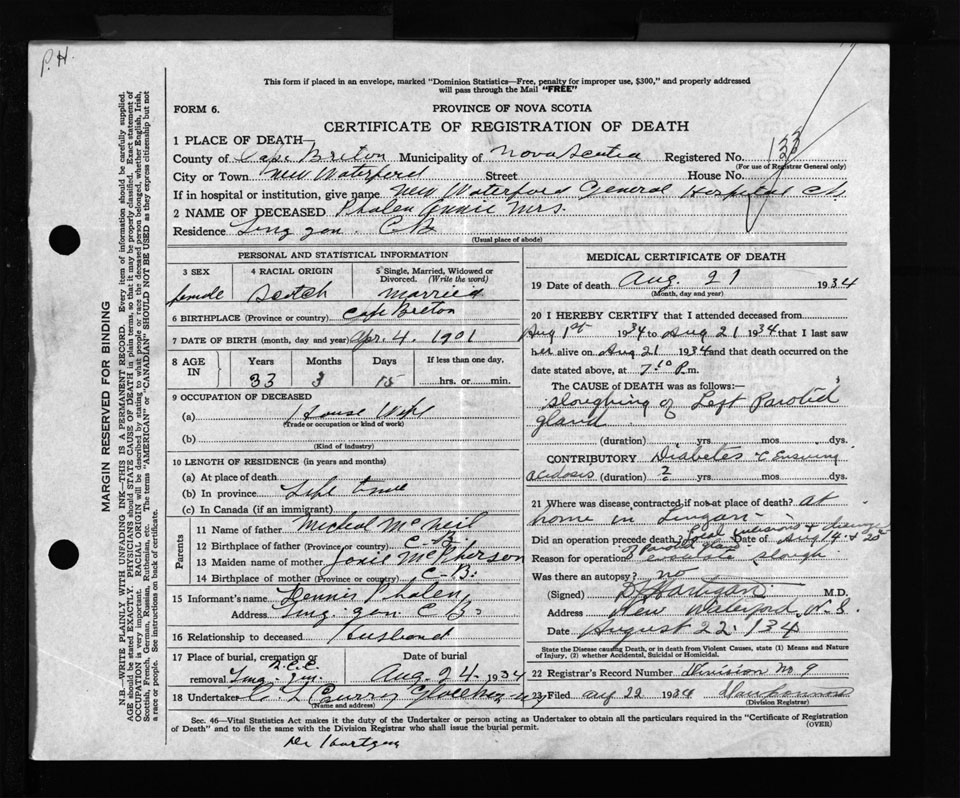 P. H.
This form if placed in an envelope, marked "Dominion Statistics—Free, penalty for improper use, $300," and properly addressed
will pass through the Mail "FREE"
FORM 6.
PROVINCE OF NOVA SCOTIA
CERTIFICATE OF REGISTRATION OF DEATH
1 PLACE OF DEATH—
County of Cape Breton Municipality of Nova Scotia Registered No.
(For use of Registrar General only)
City or Town New Waterford Street House No.
If in hospital or institution, give name New Waterford General Hospital
2 NAME OF DECEASED Phalen Annie Mrs.
Residence Ling gan. CB
(Usual place of abode)
PERSONAL AND STATISTICAL INFORMATION
3 SEX 4 RACIAL ORIGIN 5 Single, Married, Widowed or
Divorced. (Write the word)
female Scotch Married
6 BIRTHPLACE (Province or country) Cape Breton
7 DATE OF BIRTH (month, day and year) Apr. 4. 1901
8 AGE IN Years Months Days If less than one day,
33 3 15 hrs. or min.
9 OCCUPATION OF DECEASED
(a) House Wife
(Trade or occupation or kind of work)
(b)
(Kind of industry)
10 LENGTH OF RESIDENCE (in years and months)
(a) At place of death
(b) In province Life time
(c) In Canada (if an immigrant)
Parents
11 Name of father Micheal McNeil
12 Birthplace of father (Province or country) C-B.
13 Maiden name of mother McPherson
14 Birthplace of mother (Province or country) C-B.
15 Informant's name Dennis Phalen
Address Ling-gan C B.
16 Relationship to deceased Husband
17 Place of burial, cremation or removal Date of burial
Ling-gan. Aug. 24. 1934
18 Undertaker Curry Glace Bay
(Name and address)
MEDICAL CERTIFICATE OF DEATH
19 Date of death Aug. 21 1934
(Month, day and year)
20 I HEREBY CERTIFY that I attended deceased from
Aug 1st 1934 to Aug 21 1934 that I last saw
her alive on Aug 21 1934 and that death occurred on the
date stated above, at P.m.
The CAUSE of DEATH was as follows:—
Sloughing of Left Parotid
gland
(duration) yrs. mos. dys.
CONTRIBUTORY Diabetes c Ensuing
acidosis (duration) 2 yrs. mos. dys.
21 Where was disease contracted if not at place of death? at
home in Lingan
Did an operation precede death? Local incisions & Date of Aug 14 & 20
of Parotid gland
Reason for operation slough
Was there an autopsy? no
(Signed) M.D.
Address New Waterford, N.S.
Date August 22. 134
State the Disease causing Death, or in death from Violent Causes, state (1) Means and Nature
of Injury, (2) whether Accidental, Suicidal or Homicidal.
22 Registrar's Record Number Division No 9
23 Filed Aug 22 1934
(Division Registrar)
Sec. 46—Vital Statistics Act makes it the duty of the Undertaker or person acting as Undertaker to obtain all the particulars required in the "Certificate of Registration
of Death" and to file the same with the Division Registrar who shall issue the burial permit. (OVER)
Dr Hartigan
MARGIN RESERVED FOR BINDING
N.B.—WRITE PLAINLY WITH UNFADING INK—THIS IS A PERMANENT RECORD. Every item of information should be carefully supplied.
AGE should be stated EXACTLY. PHYSICIANS should STATE CAUSE OF DEATH in plain terms, so that it may be properly classified. Exact statement of
OCCUPATION is very important. RACIAL ORIGIN will be described by stating to what people or race the deceased person belonged, whether English, Irish,
Scottish, French, German, Russian, Ruthenian, etc. The terms "AMERICAN" or "CANADIAN" SHOULD NOT BE USED as they express citizenship but not
a race or people. See instructions on back of certificate.